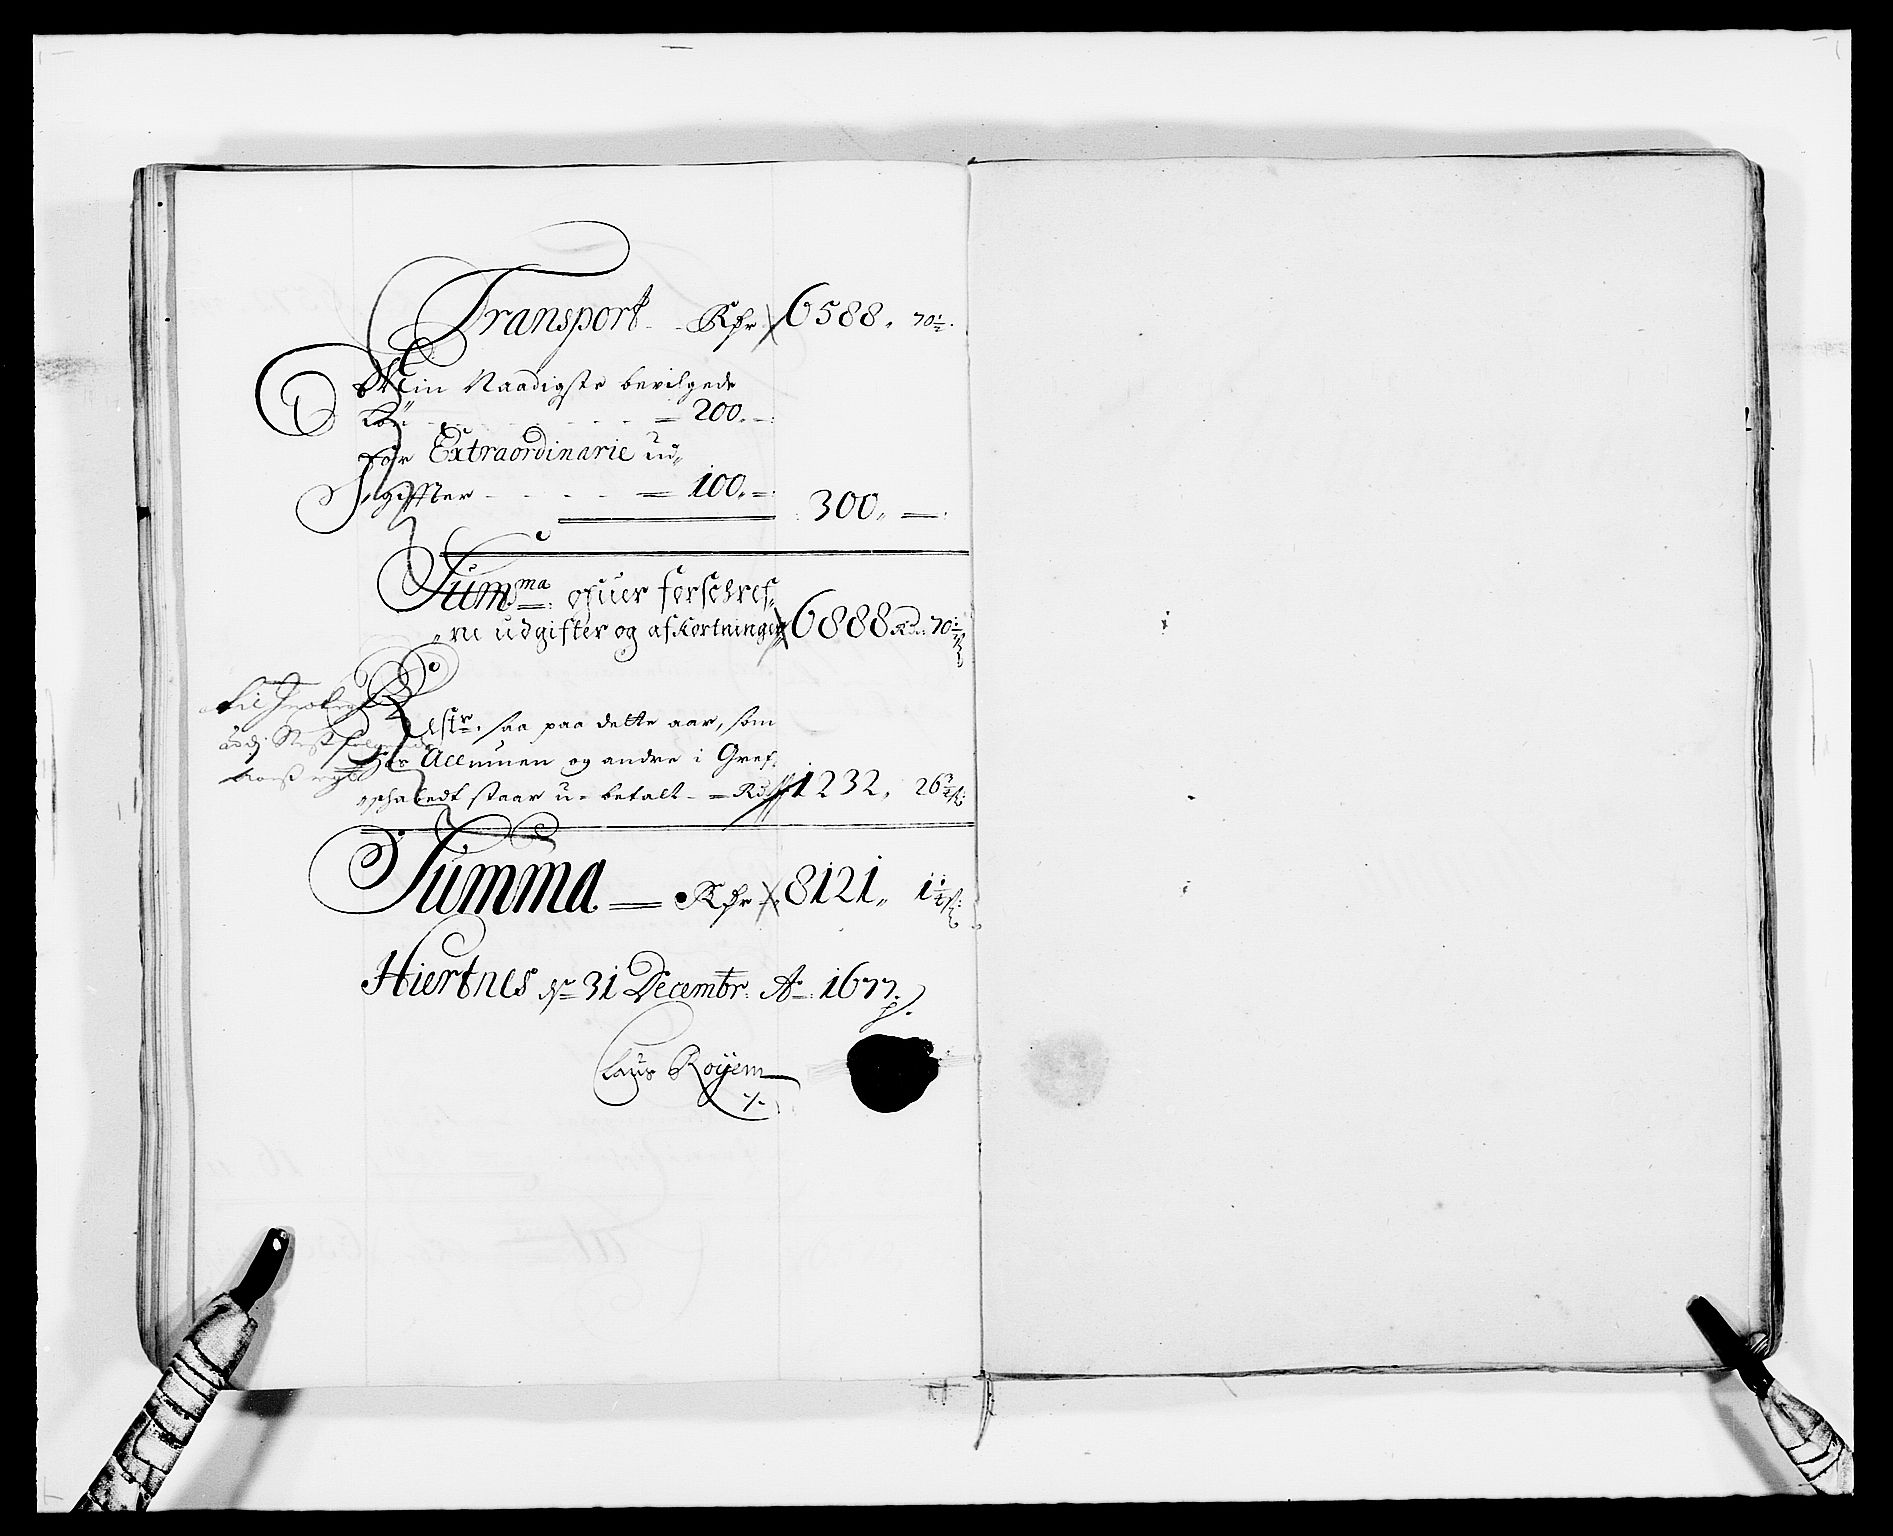 Transport - Rdr 6588. 70½.
Min Naadigste bevilgede
Løn - - - = 200. -
for Extraordinarie ud„
giffter - - - = 100. -
300. -
Summa ofuer forschref„
„ne udgifter og afKortninger 6888 Rd: 70½
til
Rester, saa paa dette aar, som
Allmuen og andre i Gref„
schabedt staar u- betalt - Rd 1232. 26¾
Summa = Rdr 8121. 1¼
Hiertnes dn 31 Decembr: Ao: 1677.
Claus Røyem